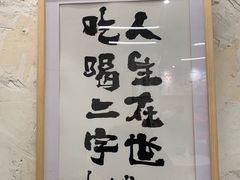 人生在世
吃喝二字